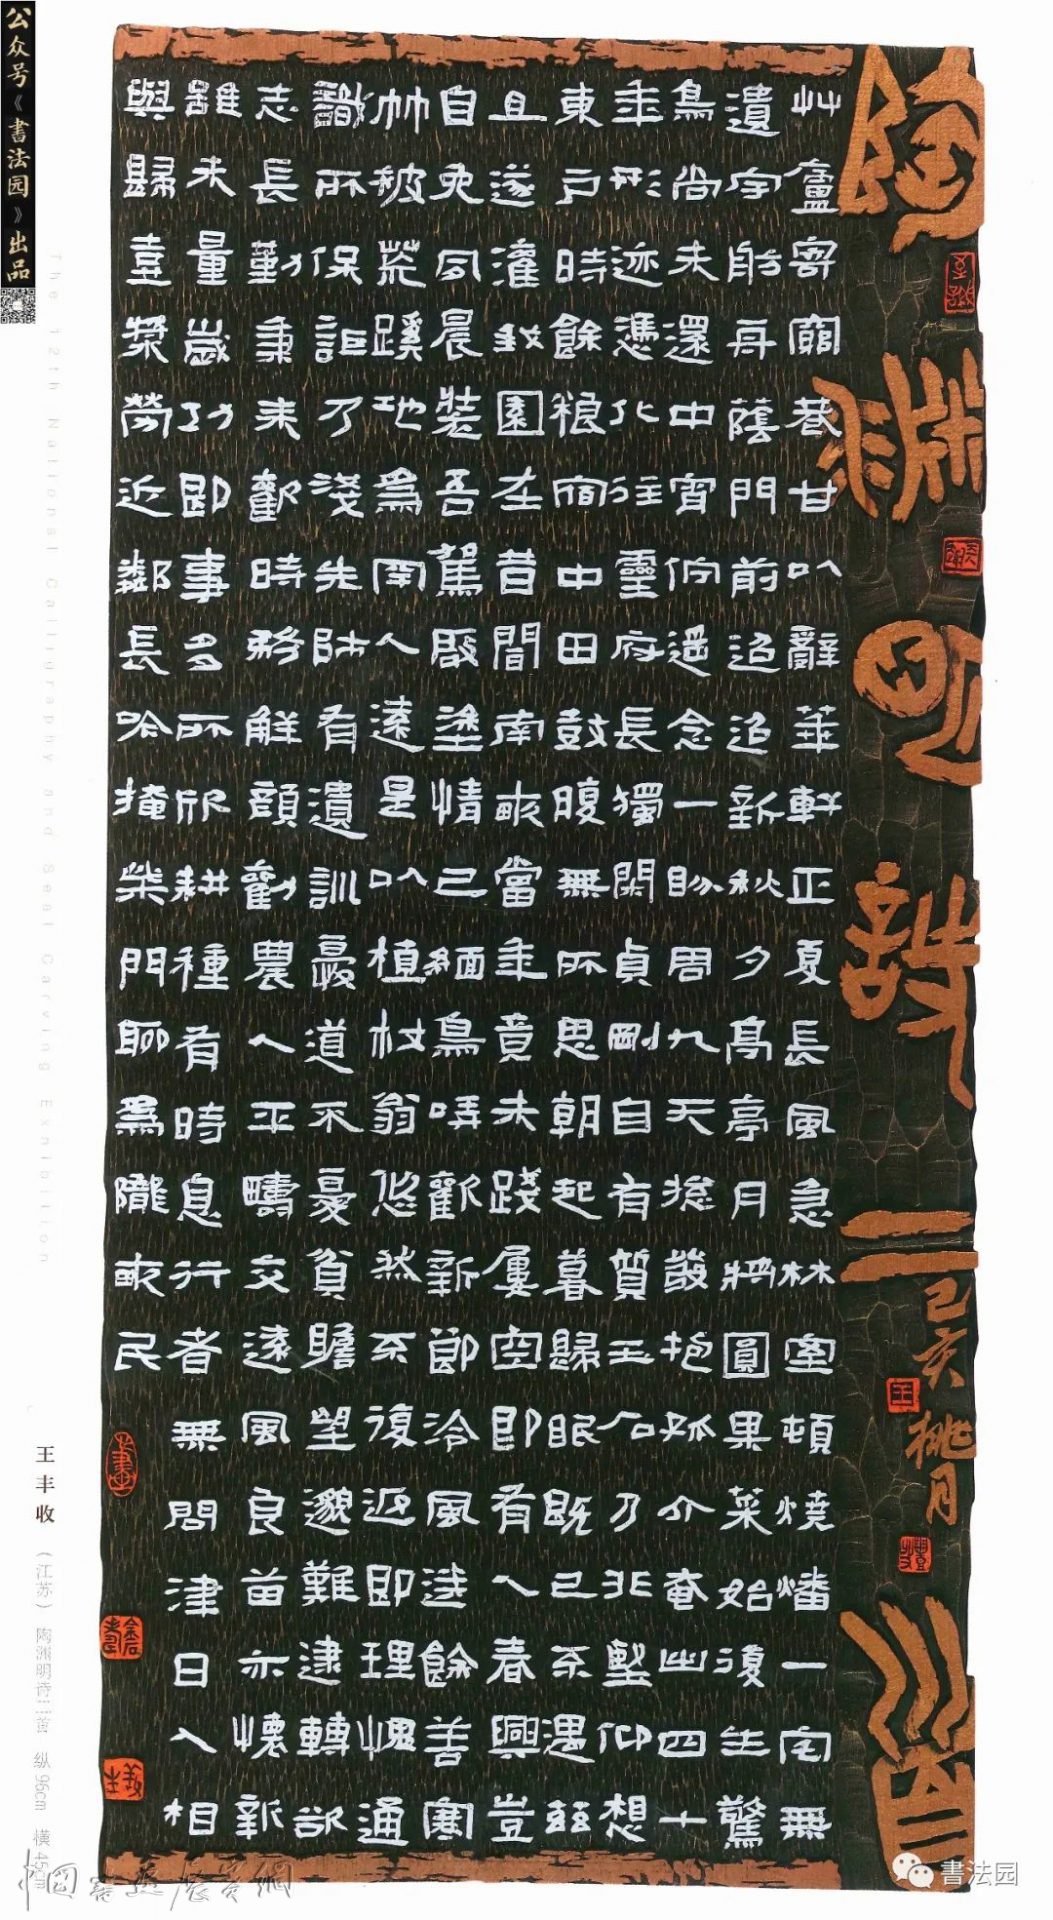 陶淵明詩二首
己亥桃月
艸廬寄窮巷甘以辭華軒正夏長風急林室頓燒燔一宅無
遺宇舫舟蔭門前迢迢新秋夕高亭月將圓果菜始復生驚
鳥尚未還中宵佇遥念一盼周九天摠發抱孤介奄出四十
年形迹憑化往靈府長獨閑貞剛自有質玉石乃非堅仰想
東戶時餘粮宿中田鼓腹無所思朝起暮歸眠既已不遇茲
且遂灌我園在昔聞南畝當年竟未踐屢空即有人春興豈
自免夙晨裝吾駕啟塗情已緬鳥哢歡新節泠風送餘善寒
竹被荒蹊地為罕人遠是以植杖翁悠然不復返即理愧通
識所保詎乃淺先師有遺訓憂道不憂貧瞻望邈難逮轉欲
志長勤秉耒歡時務解顏勸農人平疇交遠風良苗亦懷新
雖未量歲功即事多所欣耕種有時息行者無問津日入相
與歸壺漿勞近鄰長吟掩柴門聊為隴畝民
The 12th National Calligraphy and Seal Carving Exhibition
王丰收（江苏） 陶渊明诗三首 纵96cm 横45cm
公众号《書法园》出品
書法园